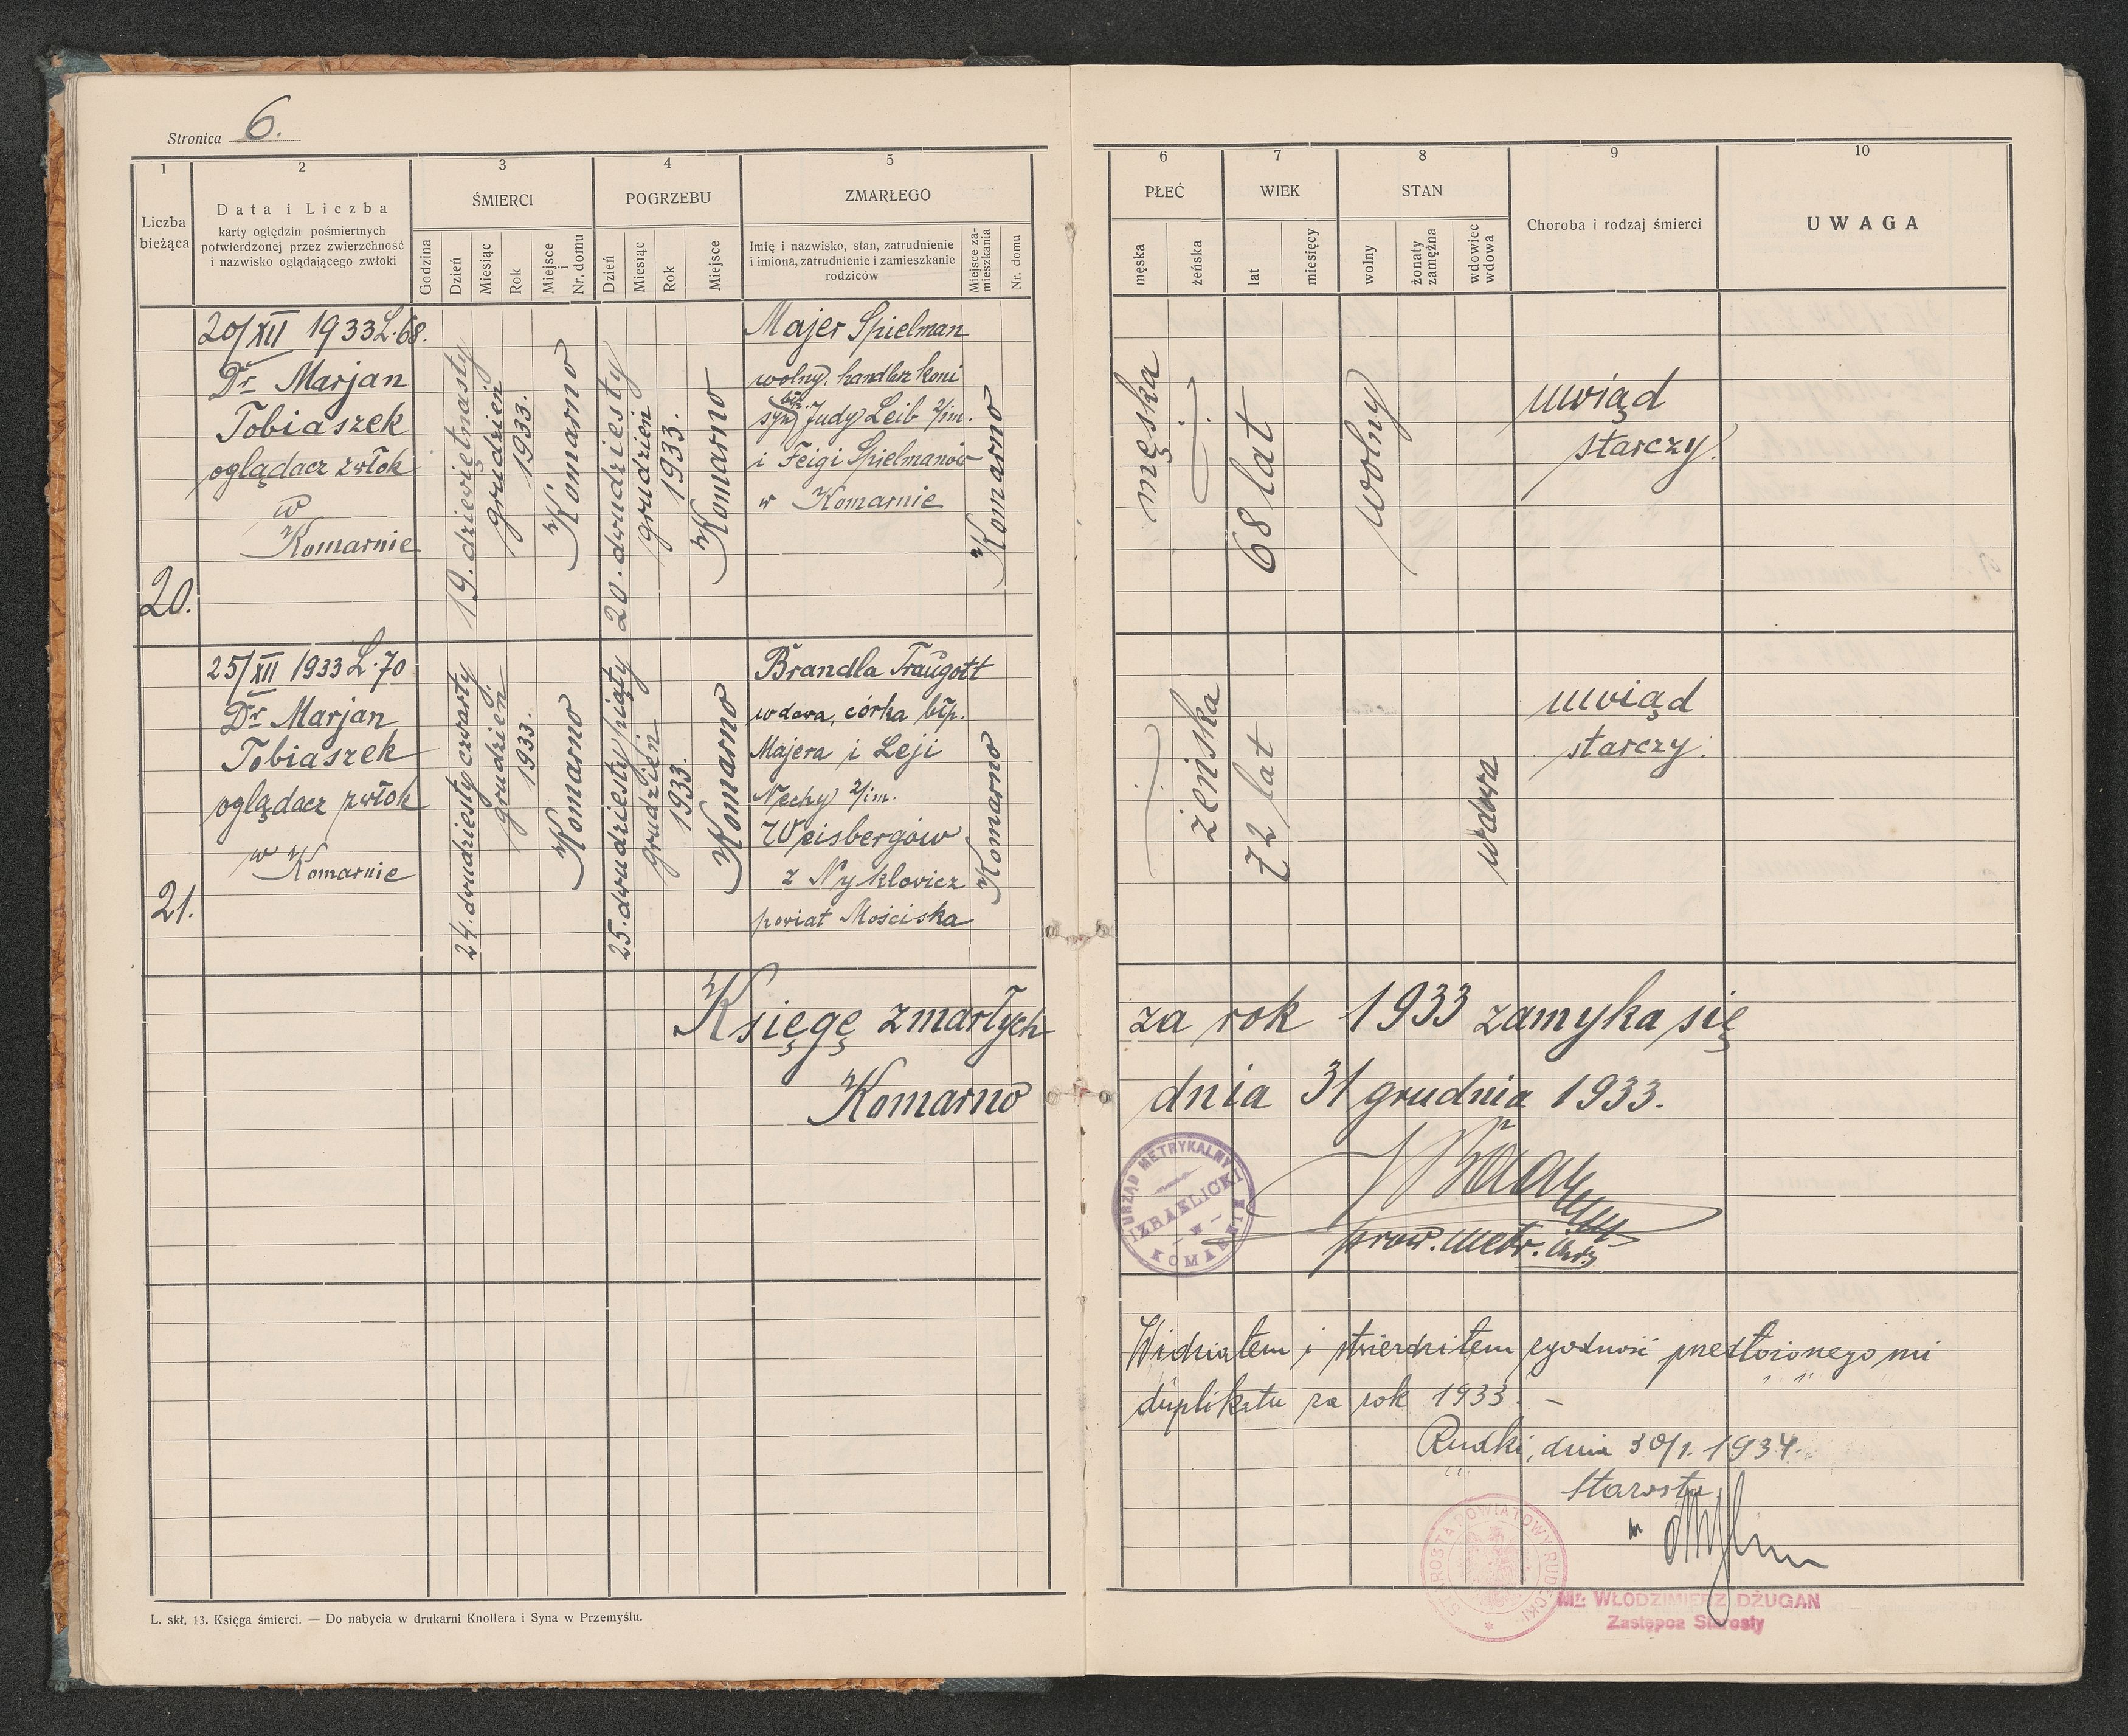 Stronica 6.
1 2 3 4 5
Liczba bieżąca
Data i Liczba
karty oględzin pośmiertnych
potwierdzonej przez zwierzchność
i nazwisko oglądającego zwłoki
ŚMIERCI
Godzina
Dzień
Miesiąc
Rok
Miejsce i Nr. domu
POGRZEBU
Dzień
Miesiąc
Rok
Miejsce
ZMARŁEGO
Imię i nazwisko, stan, zatrudnienie
i imiona, zatrudnienie i zamieszkanie
rodziców
Miejsce za-
mieszkania
Nr. domu
6 7 8 9 10
PŁEĆ
męska
żeńska
WIEK
lat
miesięcy
STAN
wolny
żonaty
zamężna
wdowiec
wdowa
Choroba i rodzaj śmierci
UWAGA
20.
20/XII 1933 L.68.
Dr Marjan
Tobiaszek
oglądacz zwłok
w
Komarnie
19. dziewiętnasty
grudzień
1933.
Komarno
20. dwudziesty
grudzień
1933.
Komarno
Majer Spielman
wolny, handlarz koni
syn błp. Judy Leib 2/im.
i Feigi Spielmanów
w Komarnie
Komarno
męska
68 lat
wolny
uwiąd
starczy.
21.
25/XII 1933 L.70
Dr Marjan
Tobiaszek
oglądacz zwłok
w Komarnie
24. dwudziesty czwarty
grudzień
1933.
Komarno
25. dwudziesty piąty
grudzień
1933.
Komarno
Brandla Traugott
wdowa, córka błp.
Majera i Leji
Nechy 2/im.
Weisbergów
z Nyklowicz
powiat Mościska
Komarno
żeńska
72 lat
wdowa
uwiąd
starczy.
Księgę zmarłych za rok 1933 zamyka się
Komarno dnia 31 grudnia 1933.
URZĄD METRYKALNY
IZRAELICKI
W
KOMARNIE
prow. metr. izr.
Widziałem i stwierdziłem zgodność przedłożonego mi
duplikatu za rok 1933. –
Rudki, dnia 30/1. 1934.
Starosta
STAROSTA POWIATOWY RUDECKI
Mr. WŁODZIMIERZ DŻUGAN
Zastępca Starosty
L. skł. 13. Księga śmierci. — Do nabycia w drukarni Knollera i Syna w Przemyślu.